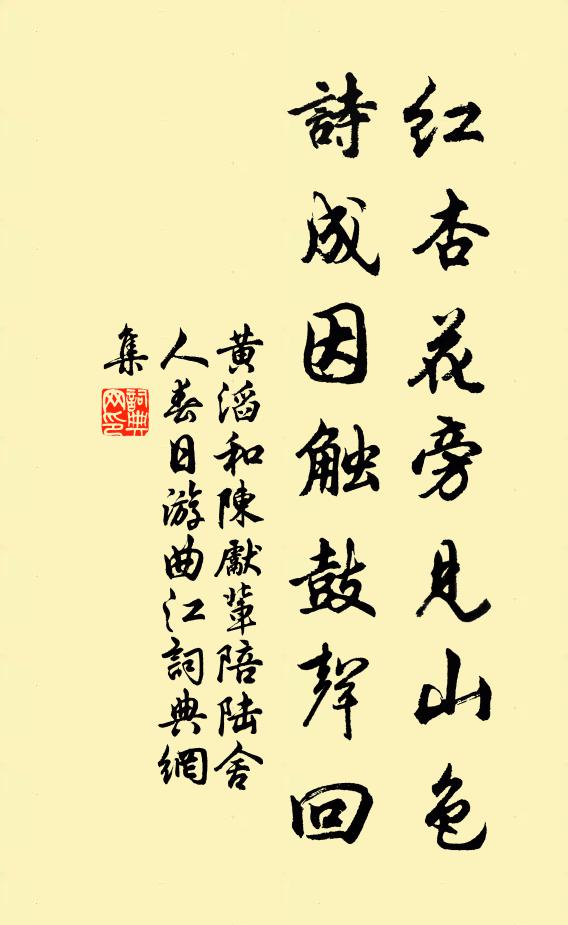 红杏花旁見山色
詩成因触鼓聲回
黄滔和陳獻輩陪陆舍
人春日游曲江詞典網
集
詞典
网印